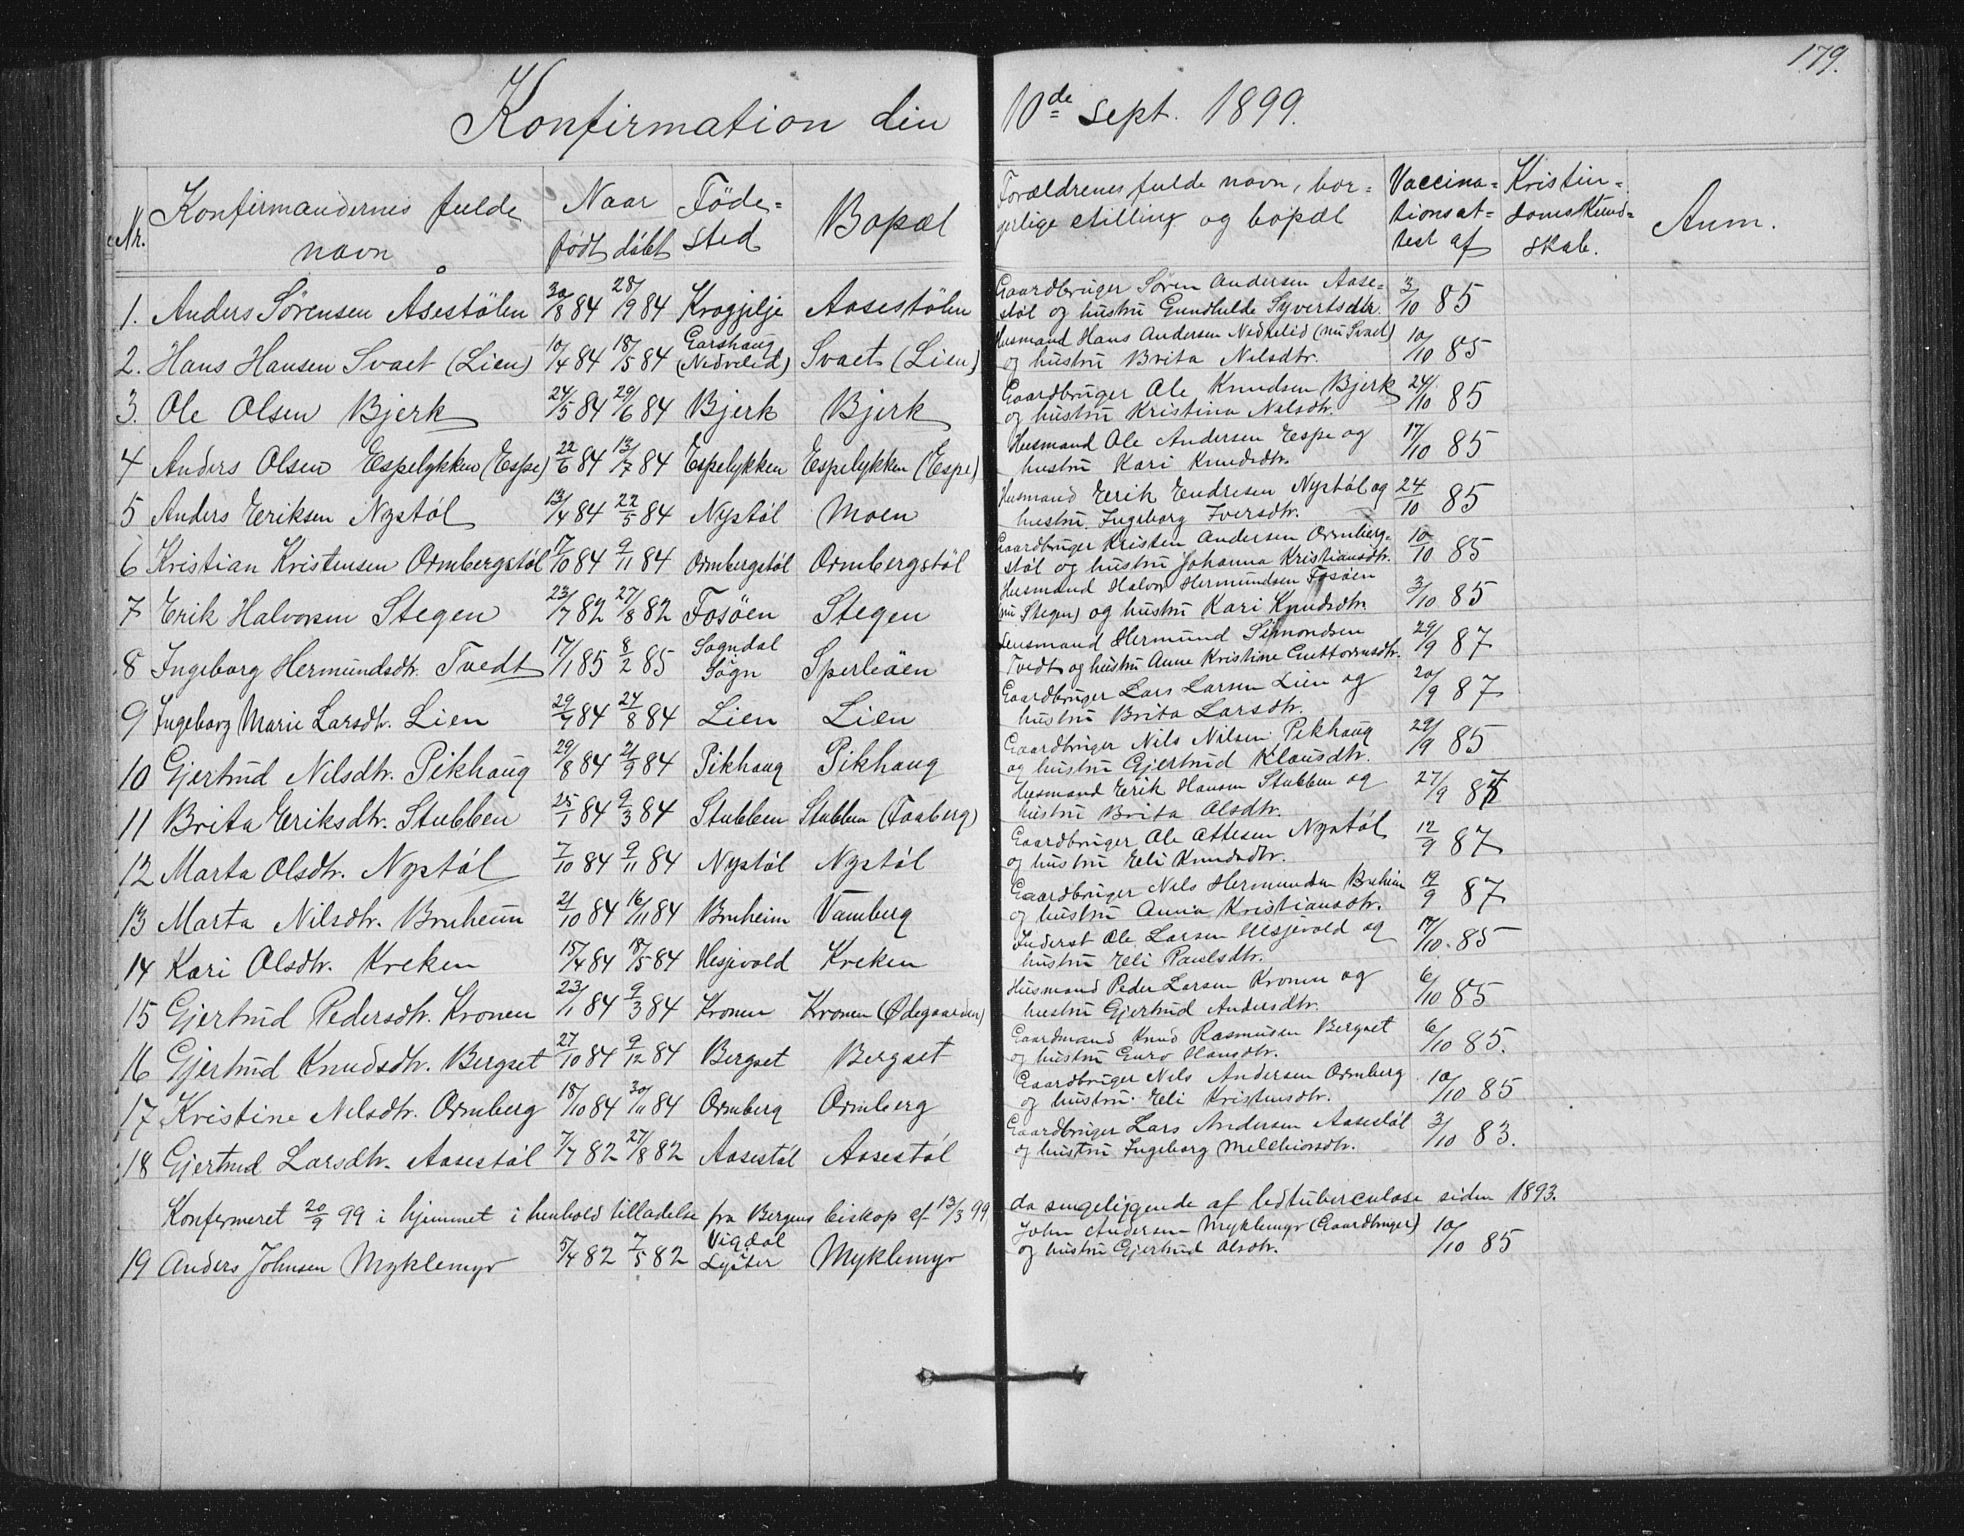 179.
Konfirmation den 10de sept. 1899.
Nr. Konfirmandernes fulde navn | Naar født døbt | Føde=sted | Bopæl | Forældrenes fulde navn, bor=gerlige stilling og bopæl | Vaccina=tionsat=test af | Kristin=domskund=skab. | Anm.
1. Anders Sørensen Åsestølen 30/8 84 28/9 84 Krogjilje Aasestølen Gaardbruger Søren Andersen Aase=støl og hustru Gundhilde Syvertsdtr. 3/10 85
2. Hans Hansen Svaet (Lien) 10/4 84 18/5 84 Garshaug (Nedrelid) Svaet (Lien) Husmand Hans Andersen Nedrelid (nu Svaet) og hustru Brita Nilsdtr. 10/10 85
3. Ole Olsen Bjerk 24/5 84 29/6 84 Bjerk Bjerk Gaardbruger Ole Knudsen Bjerk og hustru Kristina Nilsdtr. 24/10 85
4 Anders Olsen Espelykken (Espe) 22/6 84 13/7 84 Espelykken Espelykken (Espe) Husmand Ole Andersen Espe og hustru Kari Knudsdtr. 17/10 85
5 Anders Eriksen Nystøl 13/4 84 22/5 84 Nystøl Moen Husmand Erik Endresen Nystøl og hustru Ingeborg Iversdtr. 24/10 85
6 Kristian Kristensen Ormbergstøl 17/10 84 9/11 84 Ormbergstøl Ormbergstøl Gaardbruger Kristen Andersen Ormberg=støl og hustru Johanna Kristiansdtr. 10/10 85
7 Erik Halvorsen Stegen 23/7 82 27/8 82 Fosøen Stegen Husmand Halvor Hermundsen Fosøen (nu Stegen) og hustru Kari Knudsdtr. 3/10 85
8 Ingeborg Hermundsdtr. Tvedt 17/1 85 8/2 85 Sogndal Sogn Sperleøen Lensmand Hermund Simondsen Tvedt og hustru Anne Kristine Guttormsdtr. 29/9 87
9 Ingeborg Marie Larsdtr. Lien 29/7 84 24/8 84 Lien Lien Gaardbruger Lars Larsen Lien og hustru Brita Larsdtr. 20/9 87
10 Gjertrud Nilsdtr. Pikhaug 29/8 84 21/9 84 Pikhaug Pikhaug Gaardbruger Nils Nilsen Pikhaug og hustru Gjertrud Klausdtr. 29/9 85
11 Brita Eriksdtr. Stubben 25/1 84 9/3 84 Stubben Stubben (Faaberg) Husmand Erik Hansen Stubben og hustru Brita Olsdtr. 27/9 87
12 Marta Olsdtr. Nystøl 7/10 84 9/11 84 Nystøl Nystøl Gaardbruger Ole Ottesen Nystøl og hustru Eli Knudsdtr. 12/9 87
13 Marta Nilsdtr. Bruheim 21/10 84 16/11 84 Bruheim Vamberg Gaardbruger Nils Hermundsen Bruheim og hustru Anna Kristiansdtr. 19/9 87
14 Kari Olsdtr. Kreken 15/4 84 18/5 84 Hesjevold Kreken Inderst Ole Larsen Hesjevold og hustru Eli Paulsdtr. 17/10. 85
15 Gjertrud Pedersdtr. Kronen 23/1 84 9/3 84 Kronen Kronen (Ødegaarden) Husmand Peder Larsen Kronen og hustru Gjertrud Andersdtr. 6/10 85
16 Gjertrud Knudsdtr. Bergset 27/10 84 9/12 84 Bergset Bergset Gaardmand Knud Rasmusen Bergset og hustru Guro Hansdtr. 6/10 85.
17 Kristine Nilsdtr. Ormberg 18/10 84 30/11 84 Ormberg Ormberg Gaardbruger Nils Andersen Ormberg og hustru Eli Kristensdtr. 10/10 85
18 Gjertrud Larsdtr. Aasestøl 7/7 82 27/8 82 Aasestøl Aasestøl Gaardbruger Lars Andersen Aasestøl og hustru Ingeborg Melchiorsdtr. 3/10 83.
Konfirmeret 20/9 99 i hjemmet i henhold tilladelse fra Bergens biskop af 13/3 99 da sengeliggende af ledtuberculose siden 1893.
19 Anders Johnsen Myklemyr 5/4 82 7/5 82 Vigdal Lyster Myklemyr John Andersen Myklemyr (Gaardbruger) og hustru Gjertrud Olsdtr. 10/10 85